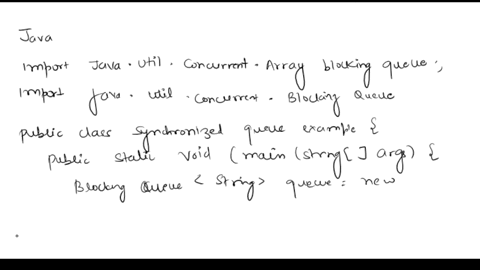 Java
import Java.util.Concurrent.Array blocking queue;
import java.util.Concurrent.Blocking Queue
public class Synchronized queue example {
public static void (main (string[] args) {
Blocking Queue < String> queue = new